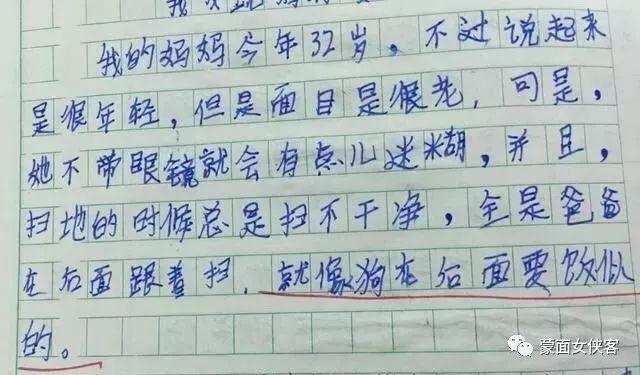 我的妈妈今年32岁，不过说起来
是很年轻，但是面目是很老，可是，
她不带眼镜就会有点儿迷糊，并且，
扫地的时候总是扫不干净，全是爸爸
在后面跟着扫，就像狗在后面要饭似
的。
蒙面女侠客